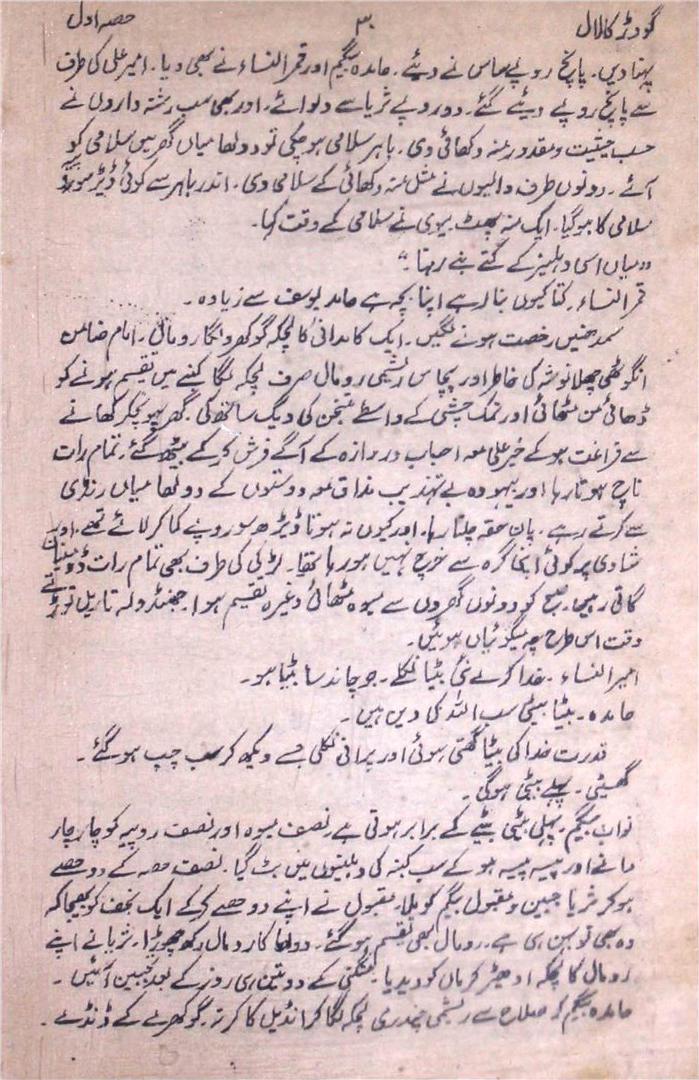 گودڑ کا لال ۳۰ حصہ اول
پہنا دیں۔ پانچ روپے ساس نے دیئے۔ حامدہ بیگم اور قمر النساء نے بھی دیا۔ امیر علی کی طرف
سے پانچ روپے دیئے گئے۔ دو روپے ثریا سے دلوائے۔ اور بھی سب رشتہ داروں نے
حسب حیثیت و مقدور منہ دکھائی دی۔ باہر سلامی ہو چکی تو دولھا میاں گھر میں سلامی کو
آئے۔ دونوں طرف والیوں نے مثل منہ دکھائی کے سلامی دی۔ اندر باہر سے کوئی ڈیڑھ سو روپیہ
سلامی کا ہو گیا۔ ایک منہ پھٹ بیوی نے سلامی کے وقت کہا۔
"میاں اسی دہلیز کے کتے بنے رہنا۔"
قمر النساء۔ کتا کیوں بنا رہے اپنا بچہ ہے حامد یوسف سے زیادہ۔
سمدھنیں رخصت ہونے لگیں۔ ایک کامدانی کا لچکہ گوکھرو لگا رومال۔ امام ضامن
انگوٹھی چھلا نوشہ کی خاطر اور پچاس ریشمی رومال صرف لچکہ لگا کنبے میں تقسیم ہونے کو
ڈھائی من مٹھائی اور نمک چشی کے واسطے متنجن کی دیگ ساتھ کی۔ گھر پہونچکر کھانے
سے فراغت ہو کے خیر علی معہ احباب دروازہ کے آگے فرش کر کے بیٹھ گئے۔ تمام رات
ناچ ہوتا رہا اور بیہودہ بے تہذیب مذاق معہ دوستوں کے دولھا میاں رنڈی
سے کرتے رہے۔ پان حقہ چلتا رہا۔ اور کیوں نہ ہوتا ڈیڑھ سو روپئے کما کر لائے تھے۔ اور
شادی پر کوئی اپنی گرہ سے خرچ نہیں ہو رہا تھا۔ لڑکی کی طرف بھی تمام رات ڈومنیاں
گاتی رہیں۔ صبح کو دونوں گھروں سے میوہ مٹھائی وغیرہ تقسیم ہوا۔ جھنڈولہ ناریل توڑتے
وقت اس طرح چہ میگوئیاں ہوئیں۔
امیر النساء۔ خدا کرے نئی بیٹا نکلے۔ جو چاند سا بیٹا ہو۔
حامدہ۔ بیٹا بیٹی سب اللہ کی دین ہیں۔
قدرت خدا کی بیٹا گھتی ہوئی اور پرانی نکلی جسے دیکھ کر سب چپ ہو گئے۔
گھیٹی۔ پہلے بیٹی ہو گی۔
نواب بیگم۔ پہلی بیٹی بیٹے کے برابر ہوتی ہے۔ نصف میوہ اور نصف روپیہ کو چار چار
دانے اور پیسہ پیسہ ہو کے سب کنبہ کی دلہنوں میں بٹ گیا۔ نصف حصہ کے دو حصے
ہو کر ثریا جبین و مقبول بیگم کو ملا۔ مقبول نے اپنے دو حصے کر کے ایک نجف کو بھیجا کہ
وہ بھی تو بہن ہی ہے۔ رومال بھی تقسیم ہو گئے۔ دولھا کا رومال رکھ چھوڑا۔ ثریا نے اپنے
رومال کا لچکہ ادھیڑ کر ماں کو دیدیا۔ منگنی کے دو تین ہی روز کے بعد مہ جبین آئیں۔
حامدہ بیگم کی صلاح سے ریشمی چندری لچکہ لگا کرانڈیل کا کرتہ گوکھرو کے ڈنڈے۔